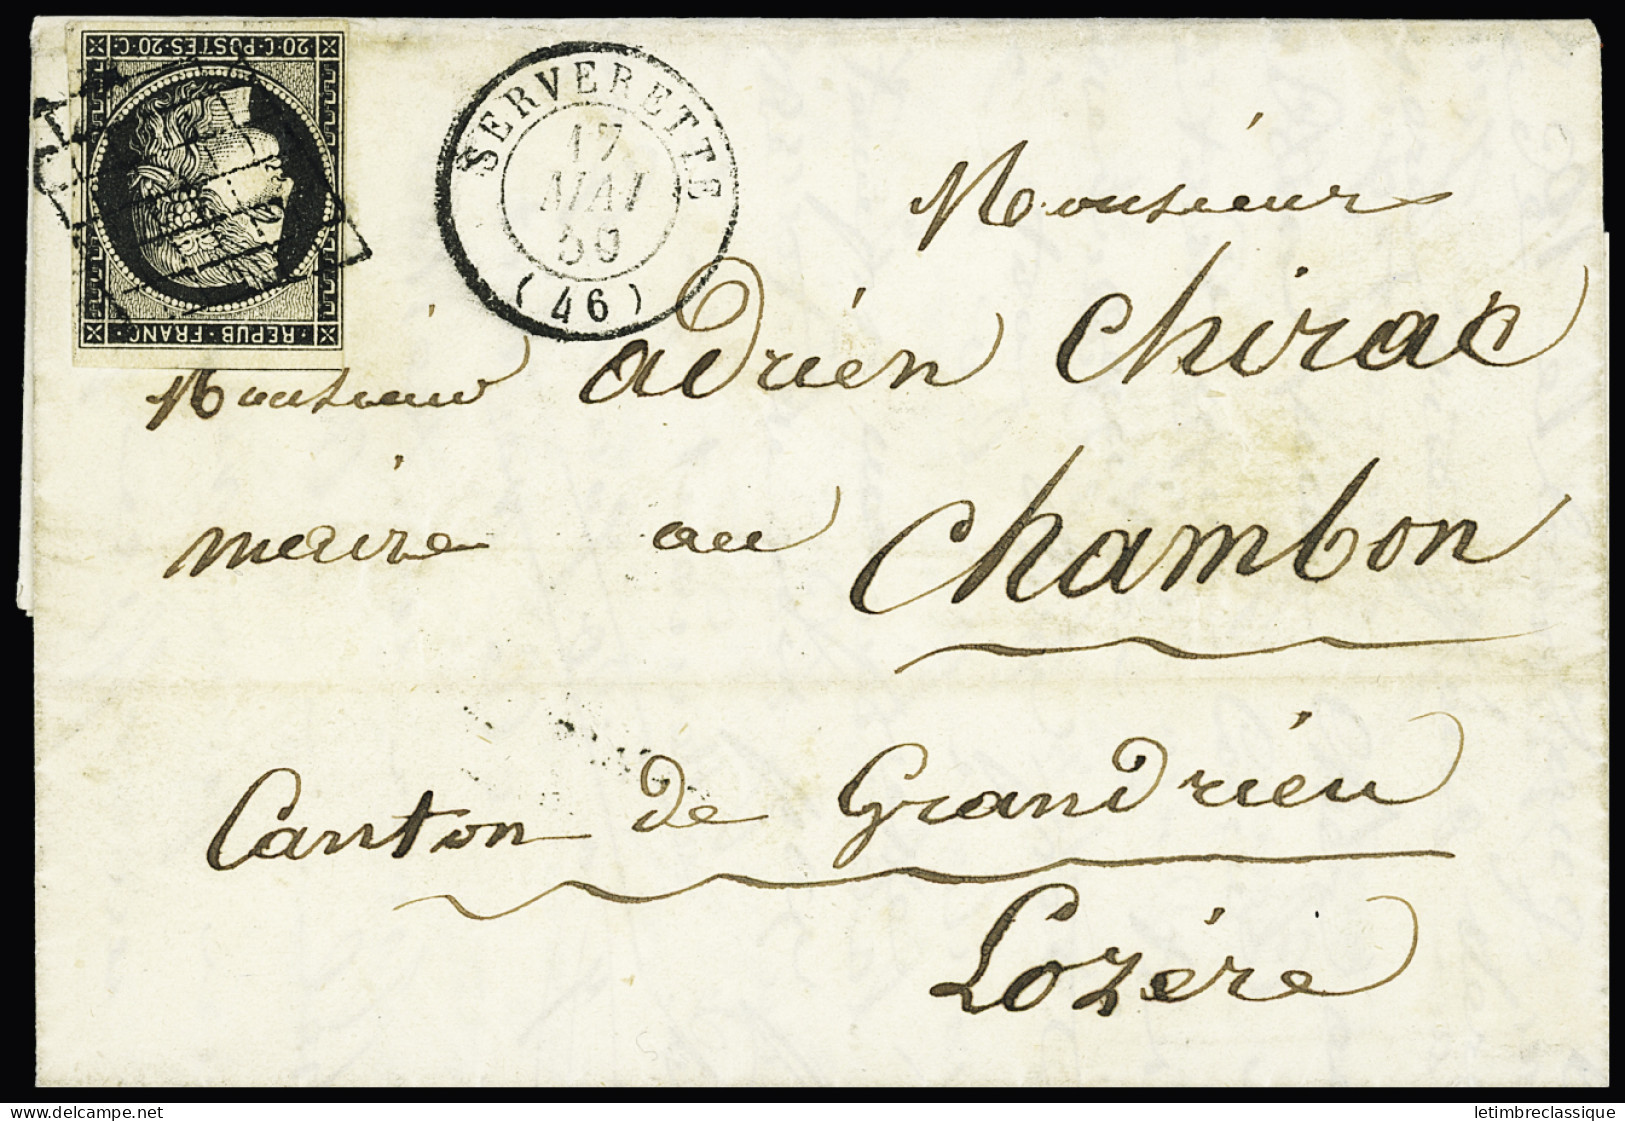 20·C·POSTES·20·C·
REPUB·FRANC·
SERVERETTE
17
MAI
50
(46)
Monsieur
Monsieur adrién Chirac
maire au Chambon
Canton de Grandriéu
Lozére
delcampe.net
letimbreclassique